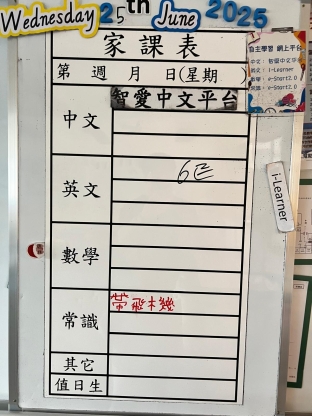 Wednesday 25th June 2025
家課表
第 週 月 日(星期 )
中文
智愛中文平台
英文
6
數學
常識
其它
值日生
自主學習 網上平台
中文: 智愛中文平台
英文: i-Learner
數學: e-Start2.0
常識: e-Start2.0
i-Learner